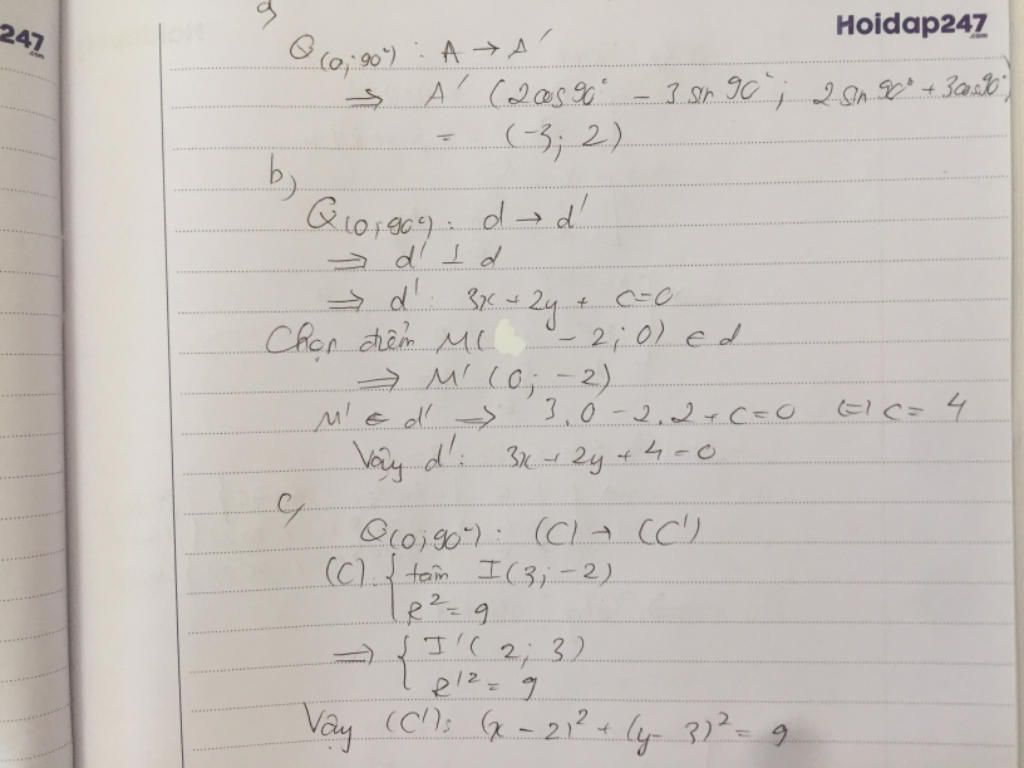 247
.com
Hoidap247
.com
a)
Q(O; 90°) : A → A'
⇒ A' (2cos90° - 3sin90°; 2sin90° + 3cos90°)
= (-3; 2)
b)
Q(O; 90°) : d → d'
⇒ d' ⊥ d
⇒ d': 3x + 2y + c = 0
Chọn điểm M( - 2; 0) ∈ d
⇒ M' (0; -2)
M' ∈ d' ⇒ 3.0 - 2.2 + c = 0 ⇔ c = 4
Vậy d': 3x + 2y + 4 = 0
c,
Q(O; 90°) : (C) → (C')
(C) { tâm I(3; -2)
R² = 9
⇒ { I'( 2; 3)
R'² = 9
Vậy (C'): (x - 2)² + (y - 3)² = 9